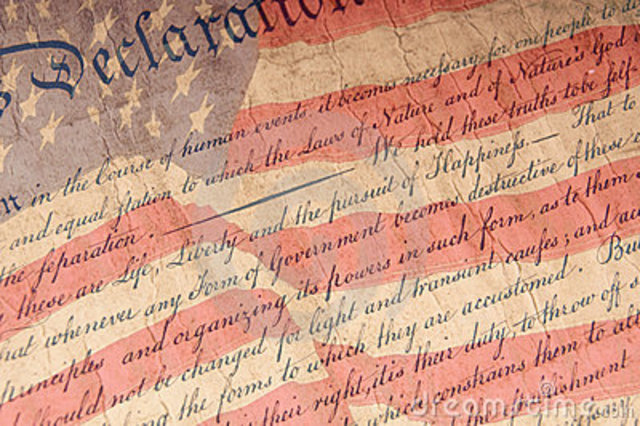 Declaration
n in the Course of human events, it becomes necessary for one people to d
and equal station to which the Laws of Nature and of Nature's God
the separation. — We hold these truths to be self
these are Life, Liberty and the pursuit of Happiness. — That to
hat whenever any Form of Government becomes destructive of these
principles and organizing its powers in such form, as to them
should not be changed for light and transient causes; and
ing the forms to which they are accustomed. Bu
is their right, it is their duty, to throw off
which constrains them to alt
establishment
dreamstime